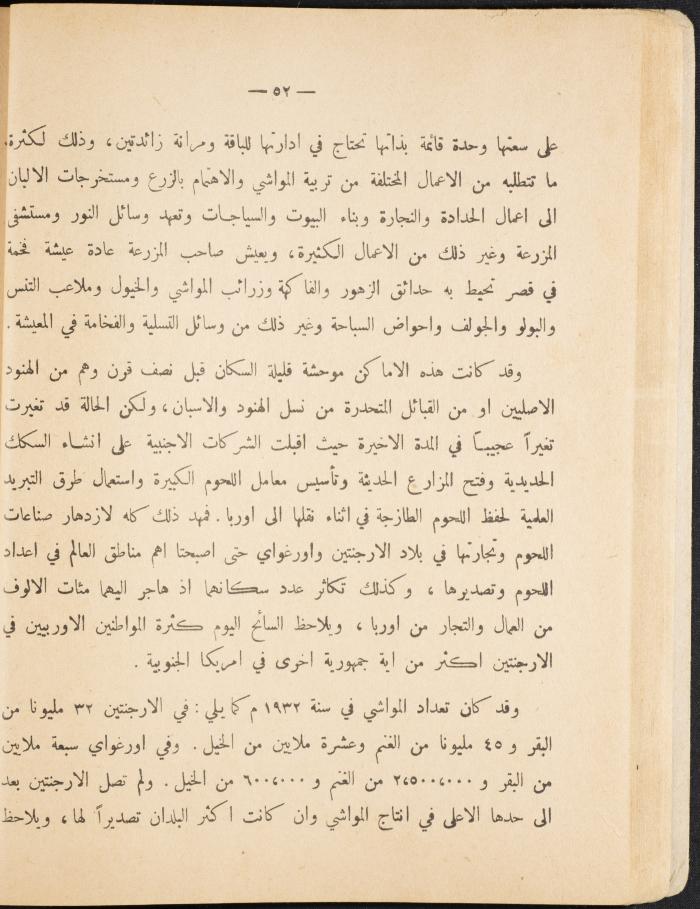 — ٥٢ —
على سعتها وحدة قائمة بذاتها تحتاج في ادارتها للباقة ومرانة زائدتين ، وذلك لكثرة
ما تتطلبه من الاعمال المختلفة من تربية المواشي والاهتمام بالزرع ومستخرجات الالبان
الى اعمال الحدادة والنجارة وبناء البيوت والسياجات وتعهد وسائل النور ومستشفى
المزرعة وغير ذلك من الاعمال الكثيرة ، ويعيش صاحب المزرعة عادة عيشة فخمة
في قصر تحيط به حدائق الزهور والفاكهة وزرائب المواشي والخيول وملاعب التنس
والبولو والجولف واحواض السباحة وغير ذلك من وسائل التسلية والفخامة في المعيشة .
وقد كانت هذه الاماكن موحشة قليلة السكان قبل نصف قرن وهم من الهنود
الاصليين او من القبائل المتحدرة من نسل الهنود والاسبان ، ولكن الحالة قد تغيرت
تغيراً عجيبـاً في المدة الاخيرة حيث اقبلت الشركات الاجنبية على انشـاء السكك
الحديدية وفتح المزارع الحديثة وتأسيس معامل اللحوم الكبيرة واستعمال طرق التبريد
العلمية لحفظ اللحوم الطازجة في اثناء نقلها الى اوربا . فمهد ذلك كله لازدهار صناعات
اللحوم وتجارتها في بلاد الارجنتين واورغواي حتى اصبحتا اهم مناطق العالم في اعداد
اللحوم وتصديرها ، وكذلك تكاثر عدد سكانهما اذ هاجر اليهما مئات الالوف
من العمال والتجار من اوربا ، ويلاحظ السائح اليوم كثرة المواطنين الاوربيين في
الارجنتين اكثر من اية جمهورية اخرى في امريكا الجنوبية .
وقد كان تعداد المواشي في سنة ١٩٣٢ م كما يلي : في الارجنتين ٣٢ مليونا من
البقر و ٤٥ مليونا من الغنم وعشرة ملايين من الخيل . وفي اورغواي سبعة ملايين
من البقر و ٢،٥٠٠،٠٠٠ من الغنم و ٦٠٠،٠٠٠ من الخيل . ولم تصل الارجنتين بعد
الى حدها الاعلى في انتاج المواشي وان كانت اكثر البلدان تصديراً لها ، ويلاحظ